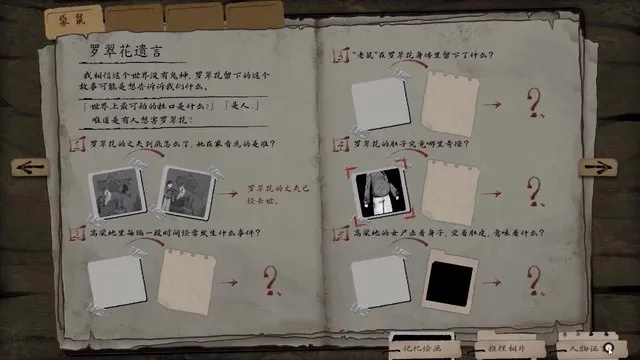 袋鼠
罗翠花遗言
我相信这个世界没有鬼神，罗翠花留下的这个
故事可能是想告诉我们什么。
「世界上最可怕的牲口是什么？」「是人。」
难道是有人想害罗翠花？
1 罗翠花的丈夫到底怎么了，她在家看见的是谁？
罗翠花的丈夫已
经去世。
2 高粱地里每隔一段时间经常发生什么事件？
?
3 "老鼠"在罗翠花身体里留下了什么？
?
4 罗翠花的肚子究竟哪里奇怪？
?
5 高粱地的女尸赤着身子，定着肚皮，意味着什么？
?
记忆绘画
推理相片
人物证